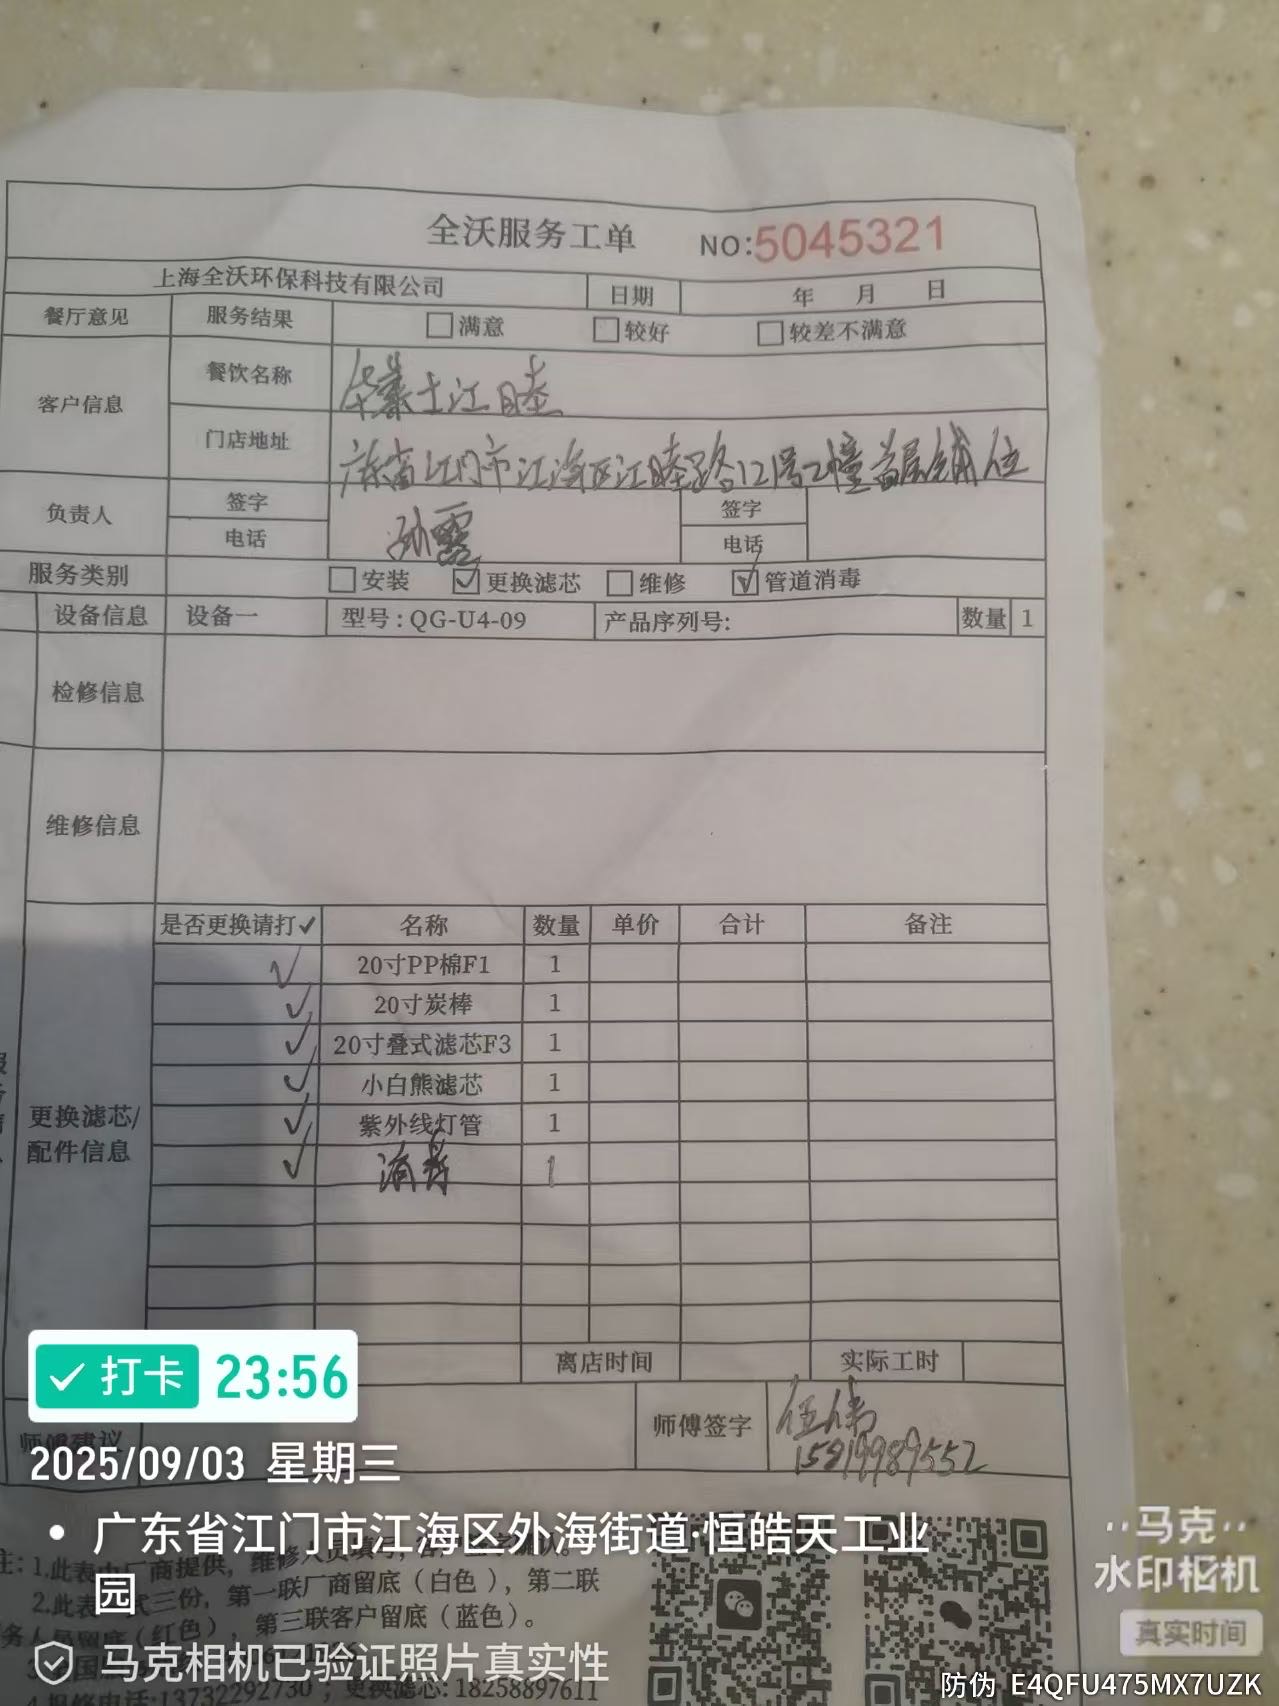 全沃服务工单 NO:5045321
上海全沃环保科技有限公司 日期 年 月 日
餐厅意见 服务结果 满意 较好 较差不满意
客户信息 餐饮名称 华莱士江睦
门店地址 广东省江门市江海区江睦路121号2幢首层铺位
负责人 签字 电话 孙露 签字 电话
服务类别 安装 更换滤芯 维修 管道消毒
设备信息 设备一 型号:QG-U4-09 产品序列号: 数量 1
检修信息
维修信息
更换滤芯/配件信息
是否更换请打✓ 名称 数量 单价 合计 备注
✓ 20寸PP棉F1 1
✓ 20寸炭棒 1
✓ 20寸叠式滤芯F3 1
✓ 小白熊滤芯 1
✓ 紫外线灯管 1
✓ 消毒 1
离店时间 实际工时
师傅建议 师傅签字 伍伟
15919989552
注:1.此表由厂商提供,维修人员填写,
2.此表 式三份,第一联厂商留底(白色),第二联
务人员留底(红色),第三联客户留底(蓝色)。
4.报修电话:13732292730,更换滤芯:18258897611
打卡 23:56
2025/09/03 星期三
广东省江门市江海区外海街道·恒皓天工业园
马克相机已验证照片真实性
马克
水印相机
真实时间
防伪 E4QFU475MX7UZK